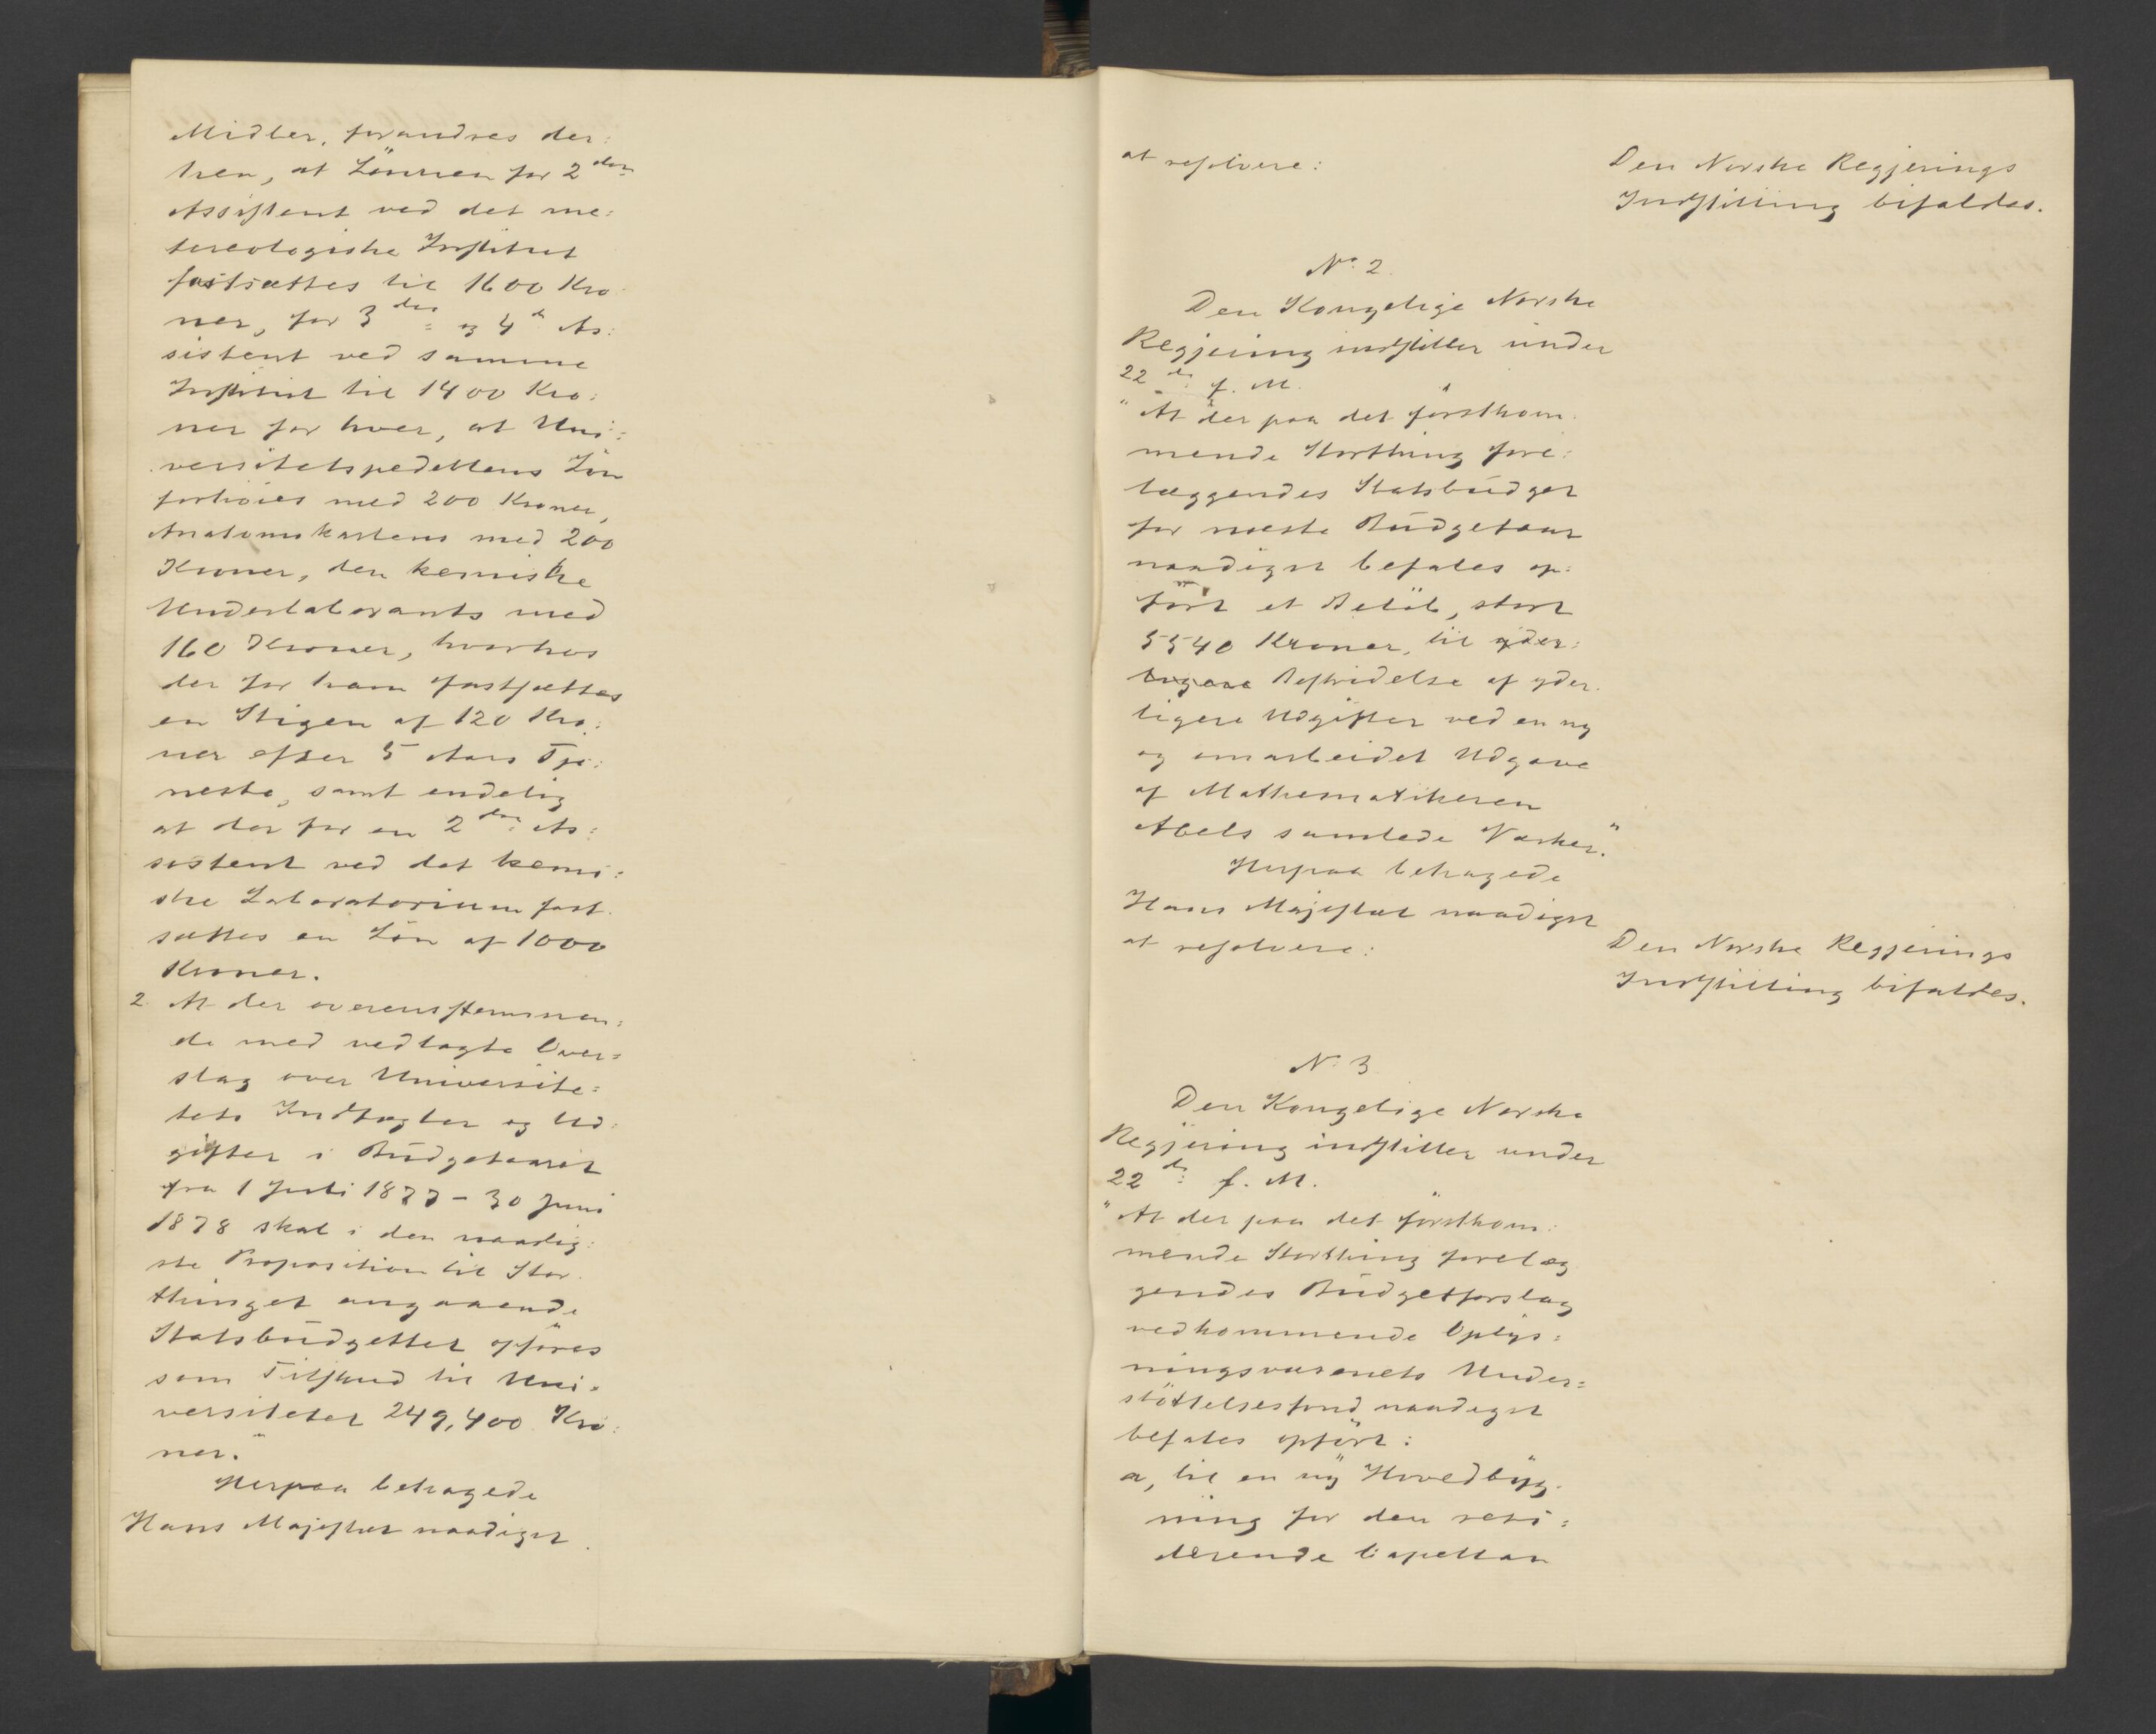 Midler, forandres der:
hen, at Lönnen for 2den
Assistent ved det me:
tereologiske Institut
fastsættes til 1600 Kro
ner, for 3die = og 4de As:
sistent ved samme
Institut til 1400 Kro:
ner for hver, at Uni:
versitetspedellens Lön
forhöies med 200 Kroner,
Anatomikarlens med 200
Kroner, den kemiske
Underlaborants med
160 Kroner, hvorhos
der for ham fastsættes
en Stigen af 120 Kro:
ner efter 5 Aars Tje:
neste, samt endelig
at der for en 2den As:
sistent ved det kemi:
ske Laboratorium fast:
sættes en Lön af 1000
Kroner.
2. At der overensstemmen:
de med vedlagte Over=
slag over Universite=
tets Indtægter og Ud:
gifter i Büdgetaaret
fra 1 Juli 1877 - 30 Juni
1878 skal i den naadig:
ste Proposition til Stor:
thinget angaaende
Statsbüdgettet opföres
som Tilskud til Uni=
versitetet 249,400 Kro:
ner."
Herpaa behagede
Hans Majestæt naadigst
at resolvere:
Den Norske Regjerings
Indstilling bifaldes.
No. 2.
Den Kongelige Norske
Regjering indstiller under
22de f. M.
"At der paa det förstkom:
mende Storthing fore:
læggendes Statsbüdget
for næste Büdgetaar
naadigst befales op:
fört et Belöb, stort
5540 Kroner, til yder:
ligere Bestridelse af yder:
ligere Udgifter ved en ny
og omarbeidet Udgave
af Mathematikeren
Abels samlede Værker."
Herpaa behagede
Hans Majestæt naadigst
at resolvere:
Den Norske Regjerings
Indstilling bifaldes.
No. 3
Den Kongelige Norske
Regjering indstiller under
22de f. M.
"At der paa det förstkom:
mende Storthing forelæg
gendes Büdgetforslag
vedkommende Oplys=
ningsvæsenets Under=
stöttelsesfond naadigst
befales opfört:
a, til en ny Hovedbyg:
ning for den resi:
derende Capellan